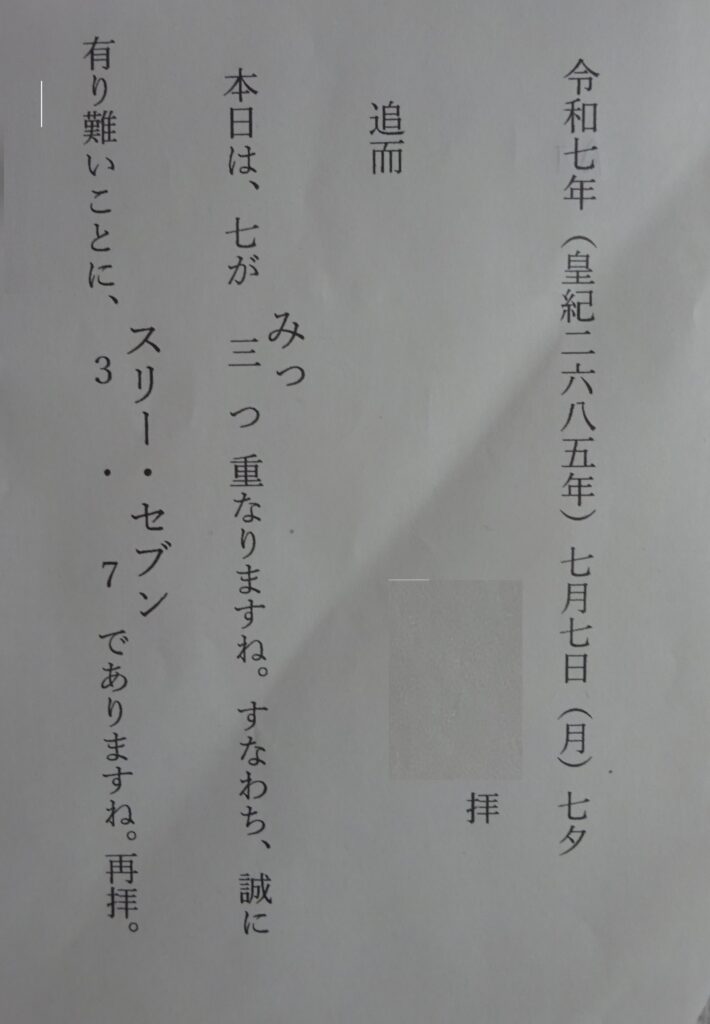 令和七年（皇紀二六八五年）七月七日（月）七夕
拝
追而
本日は、七が三つ重なりますね。すなわち、誠に
みっ
有り難いことに、3・7でありますね。再拝。
スリー・セブン